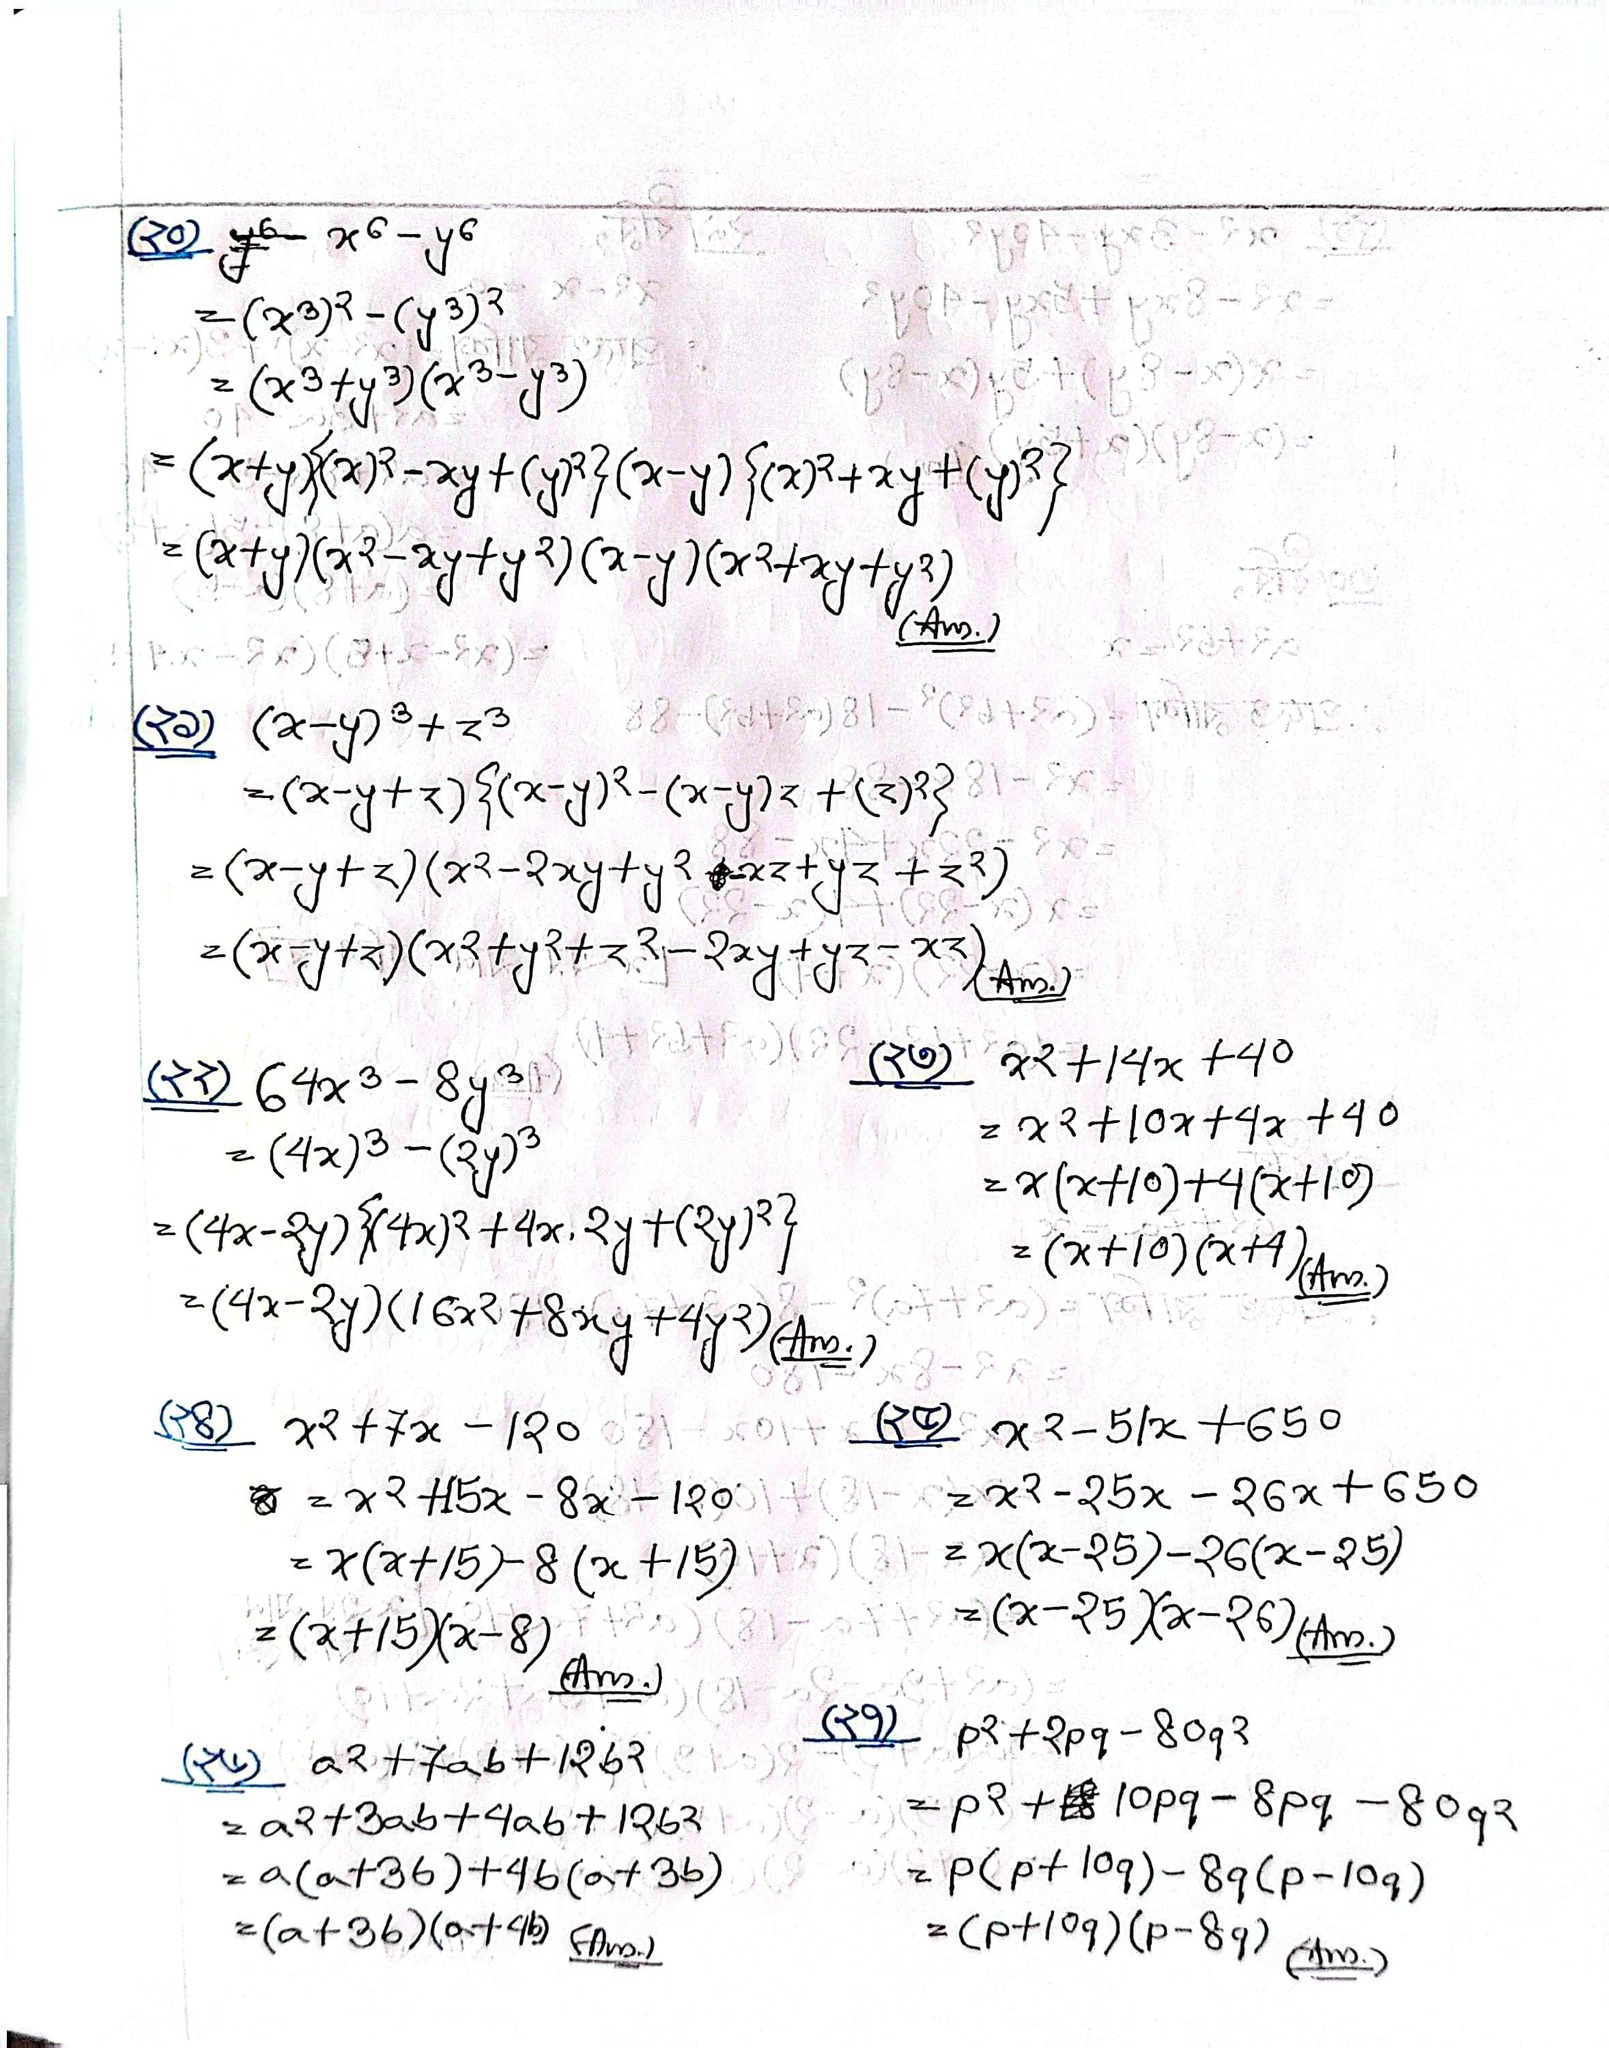 (২০) y⁶- x⁶-y⁶
=(x³)²-(y³)²
=(x³+y³)(x³-y³)
=(x+y){(x)²-xy+(y)²}(x-y){(x)²+xy+(y)²}
=(x+y)(x²-xy+y²)(x-y)(x²+xy+y²)
(Ans.)
(২১) (x-y)³+z³
=(x-y+z){(x-y)²-(x-y)z+(z)²}
=(x-y+z)(x²-2xy+y²-xz+yz+z²)
=(x-y+z)(x²+y²+z²-2xy+yz-xz) (Ans.)
(২২) 64x³-8y³
=(4x)³-(2y)³
=(4x-2y){(4x)²+4x.2y+(2y)²}
=(4x-2y)(16x²+8xy+4y²) (Ans.)
(২৩) x²+14x+40
=x²+10x+4x+40
=x(x+10)+4(x+10)
=(x+10)(x+4) (Ans.)
(২৪) x²+7x-120
=x²+15x-8x-120
=x(x+15)-8(x+15)
=(x+15)(x-8)
(Ans.)
(২৫) x²-51x+650
=x²-25x-26x+650
=x(x-25)-26(x-25)
=(x-25)(x-26) (Ans.)
(২৬) a²+7ab+12b²
=a²+3ab+4ab+12b²
=a(a+3b)+4b(a+3b)
=(a+3b)(a+4b) (Ans.)
(২৭) p²+2pq-80q²
=p²+10pq-8pq-80q²
=p(p+10q)-8q(p-10q)
=(p+10q)(p-8q) (Ans.)